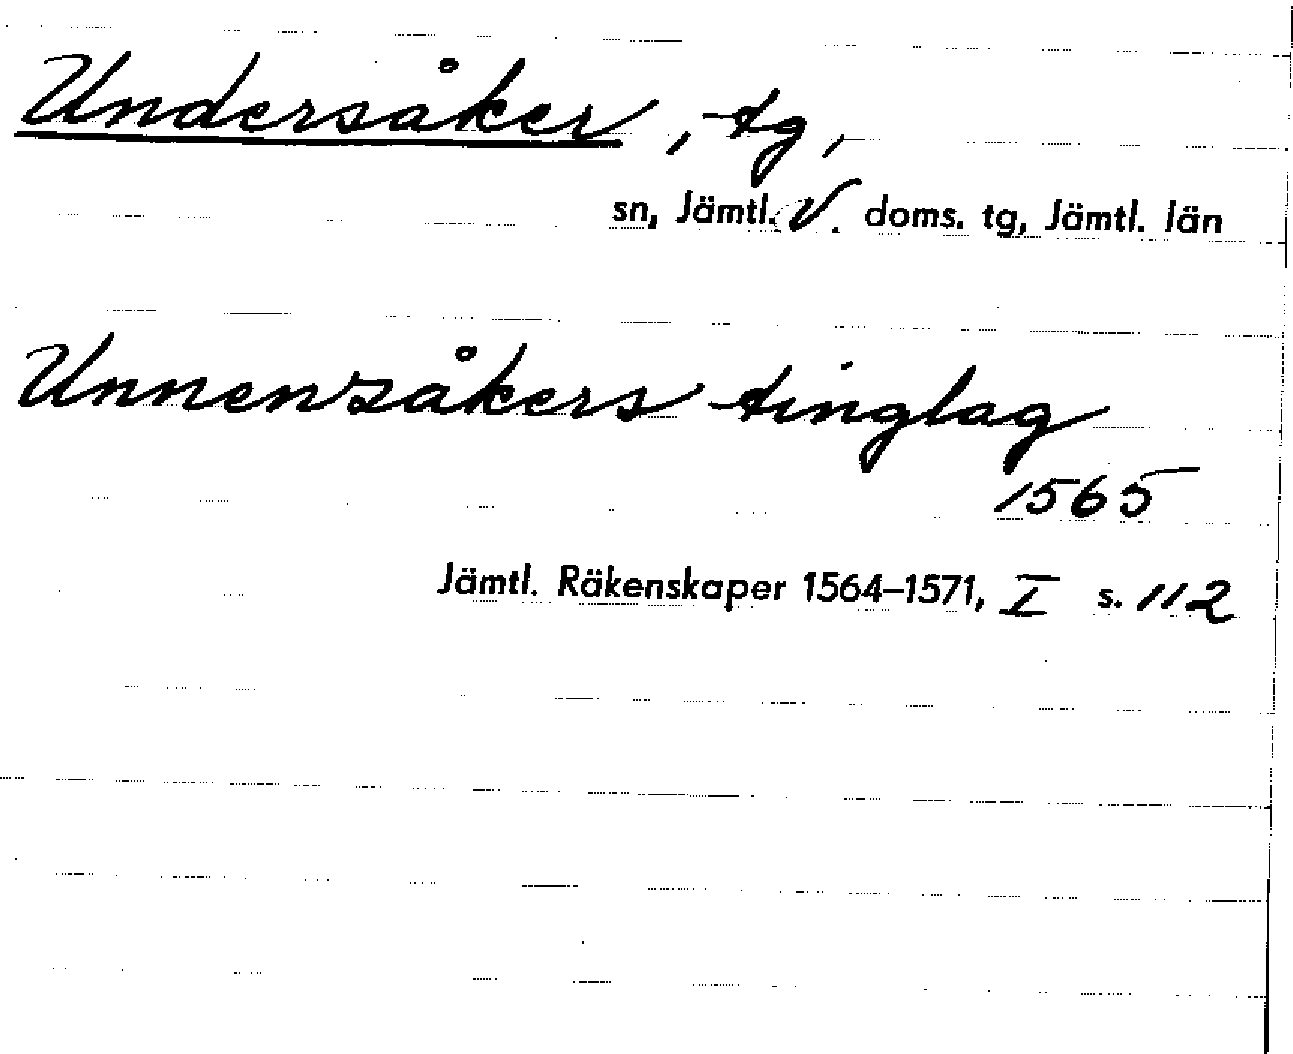 Undersåker, tg,
sn, Jämtl. V. doms. tg, Jämtl. län
Unnensåkers tinglag
1565
Jämtl. Räkenskaper 1564–1571, I s. 112